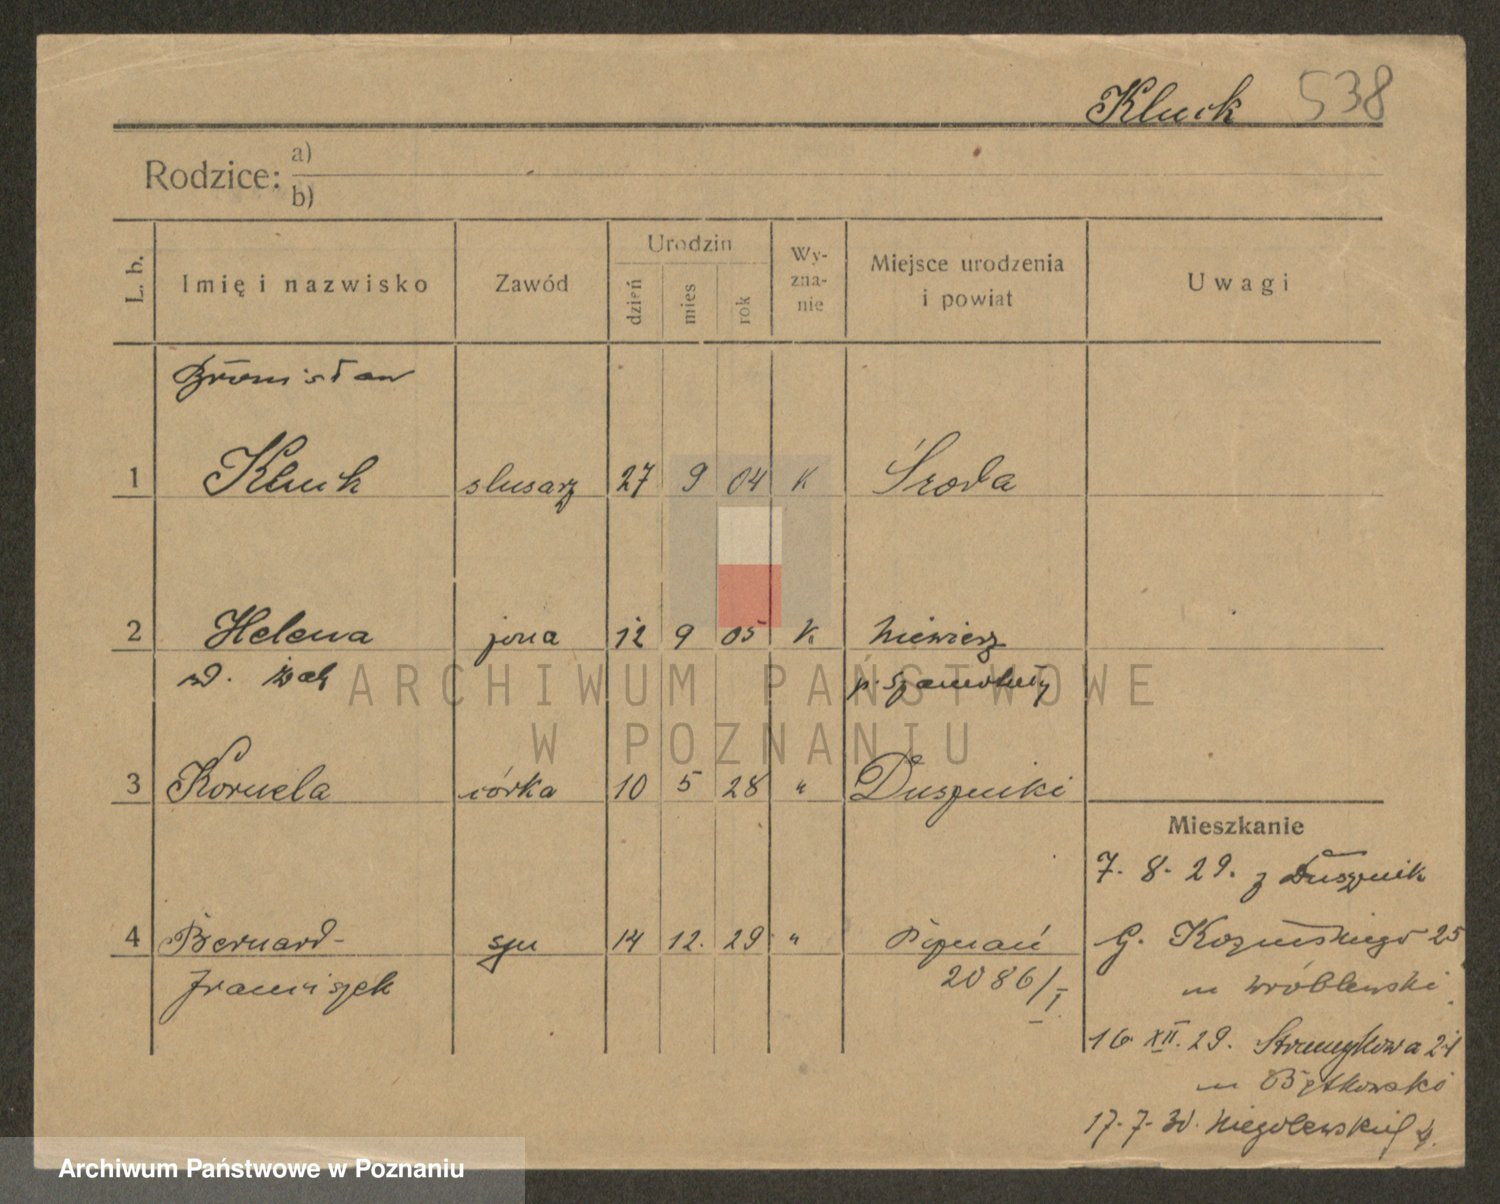 Kluck 538
Rodzice: a)
b)
L. b.
Imię i nazwisko
Zawód
Urodzin
dzień
mies
rok
Wy-
zna-
nie
Miejsce urodzenia
i powiat
Uwagi
Bronisław
1 Kluck slusarz 27 9 04 K Środa
2 Helena żona 12 9 05 K Niewierz
żak p. Szamotuły
ARCHIWUM PAŃSTWOWE
W POZNANIU
3 Kornela córka 10 5 28 " Duszniki
Mieszkanie
7. 8. 29. z Dusznik
4 Bernard- syn 14 12. 29 " Poznań
Franciszek 2086/I.
G. Kozińskiego 25
m Wróblewski
16 XII. 29. 21
m
17. 7. 30.
Archiwum Państwowe w Poznaniu